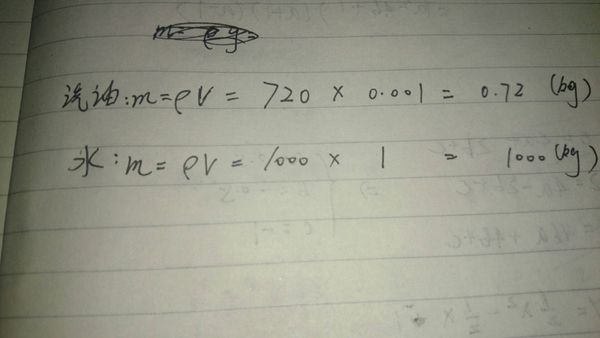 汽油:m=ρV= 720 × 0.001 = 0.72 (kg)
水:m=ρV= 1000 × 1 = 1000 (kg)